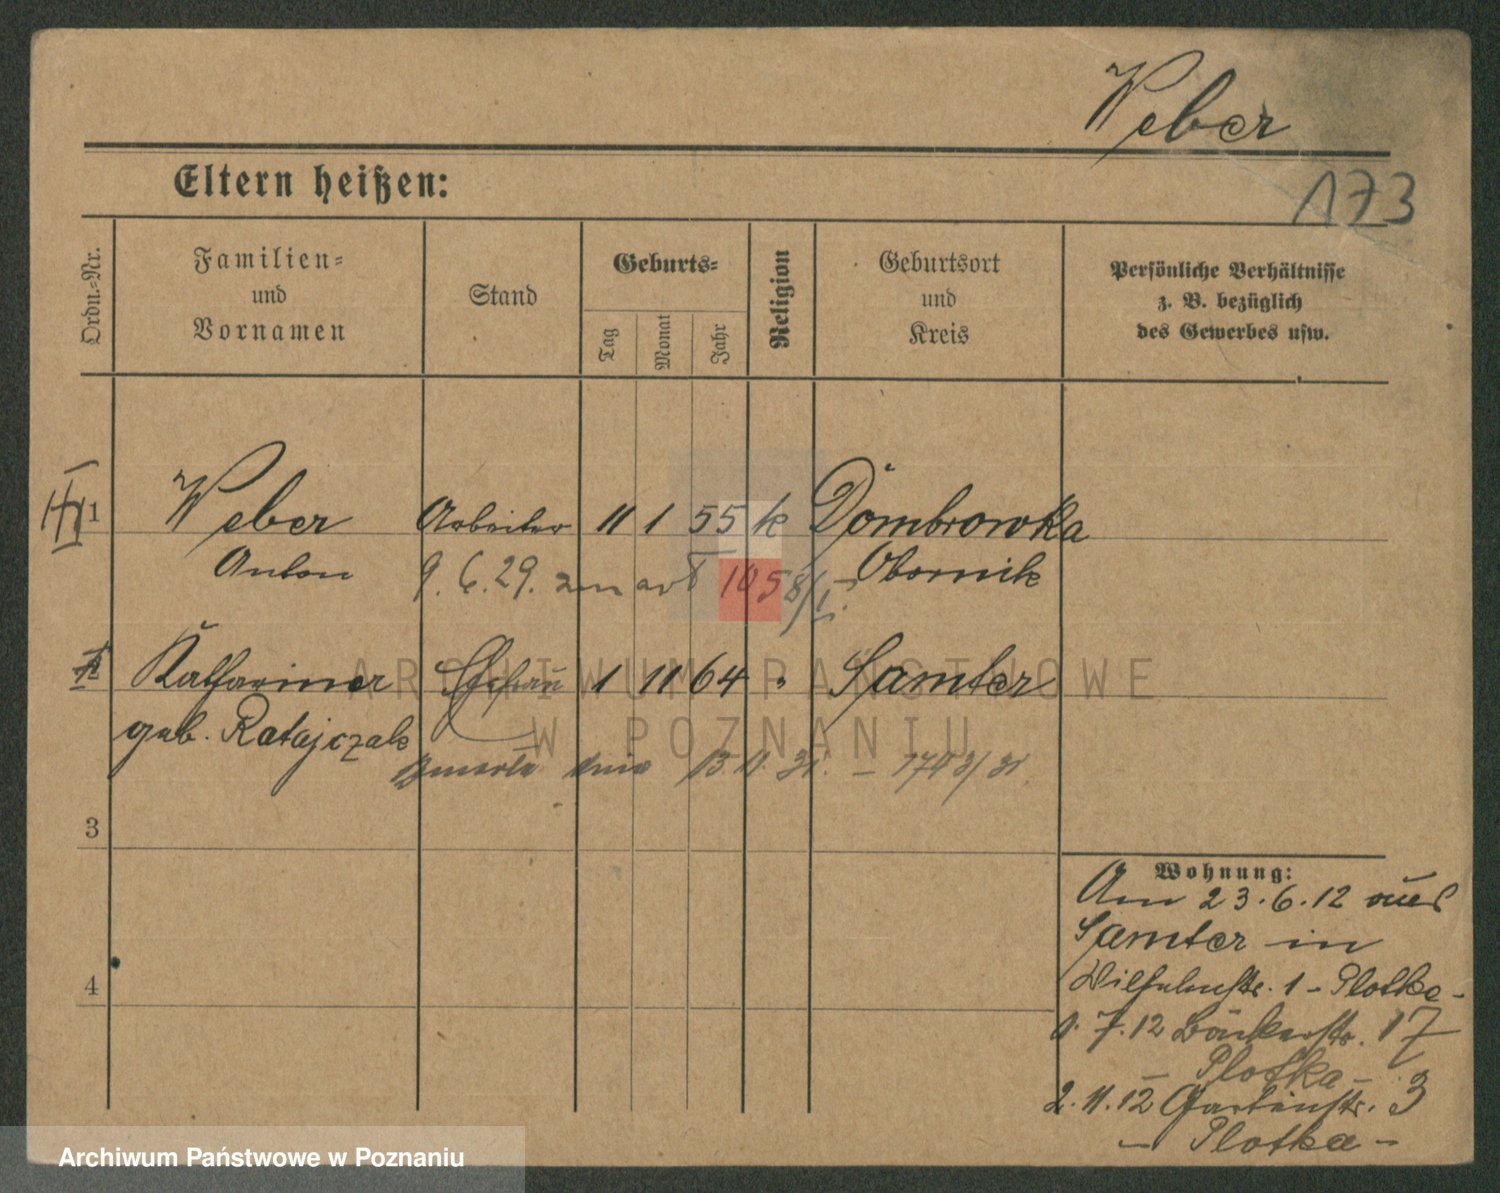 Weber
173
Eltern heißen:
Ordn.-Nr.
Familien-
und
Vornamen
Stand
Geburts-
Tag
Monat
Jahr
Religion
Geburtsort
und
Kreis
Persönliche Verhältnisse
z. B. bezüglich
des Gewerbes usw.
1 Weber Arbeiter 11 1 55 k Dombrowka
Anton Obornik
9.6.29.
Katharina Ehefrau 1 11 64 " Samter
geb. Ratajczak
zmarła dnia
3
4
Wohnung:
Am 23.6.12 aus
Samter in
Wilhelmstr. 1 - Plotka -
1.7.12 Bäckerstr. 17
- Plotka -
2.11.12 Gartenstr. 3
- Plotka -
ARCHIWUM PAŃSTWOWE
W POZNANIU
Archiwum Państwowe w Poznaniu